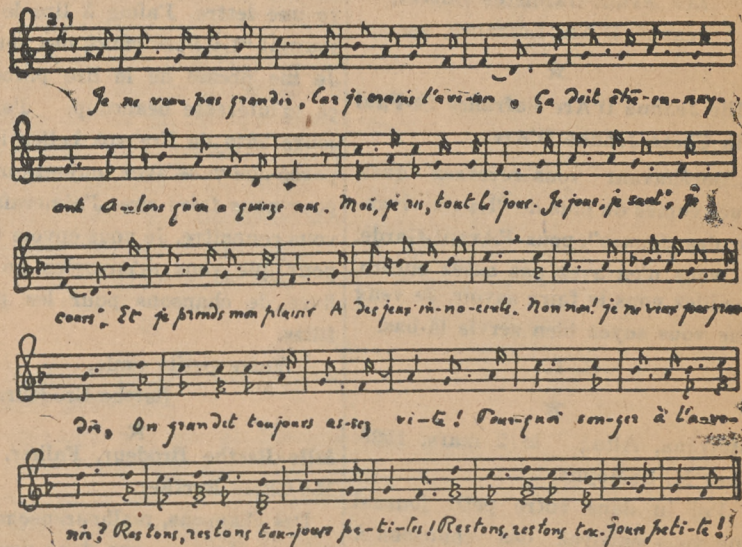 2.1
Je ne veux pas grandir, Car je crains l'ave-nir. Ça doit être-en-nuy-
ant A-lors qu'on a quinze ans. Moi, je ris, tout le jour. Je joue, je saut', je
cours'. Et je prends mon plaisir A des jeux in-no-cents. Non non! je ne veux pas gran-
dir, On grandit toujours as-sez vi-te! Pour-quoi son-ger à l'ave-
nir? Restons, restons tou-jours pe-ti-tes! Restons, restons tou-jours peti-te!